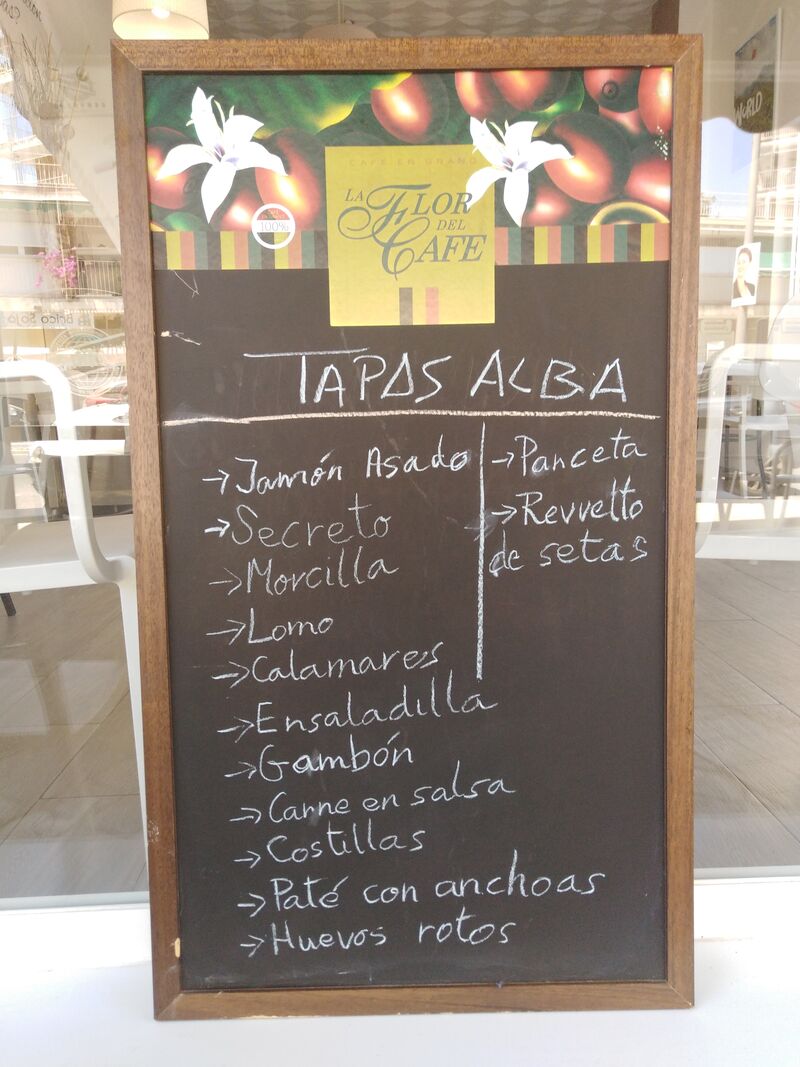 CAFÉ EN GRANO
LA FLOR
DEL
CAFÉ
100%
TAPAS ALBA
→Jamón Asado
→Secreto
→Morcilla
→Lomo
→Calamares
→Ensaladilla
→Gambón
→Carne en salsa
→Costillas
→Paté con anchoas
→Huevos rotos
→Panceta
→Revuelto
de setas
WORLD